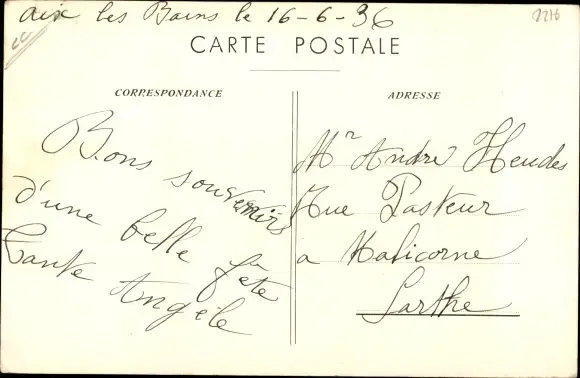 Aix les Bains le 16-6-36
2216
CARTE POSTALE
CORRESPONDANCE
ADRESSE
Bons souvenirs
d'une belle fête
Tante Angèle
Mr André Heudes
Rue Pasteur
a Malicorne
Sarthe